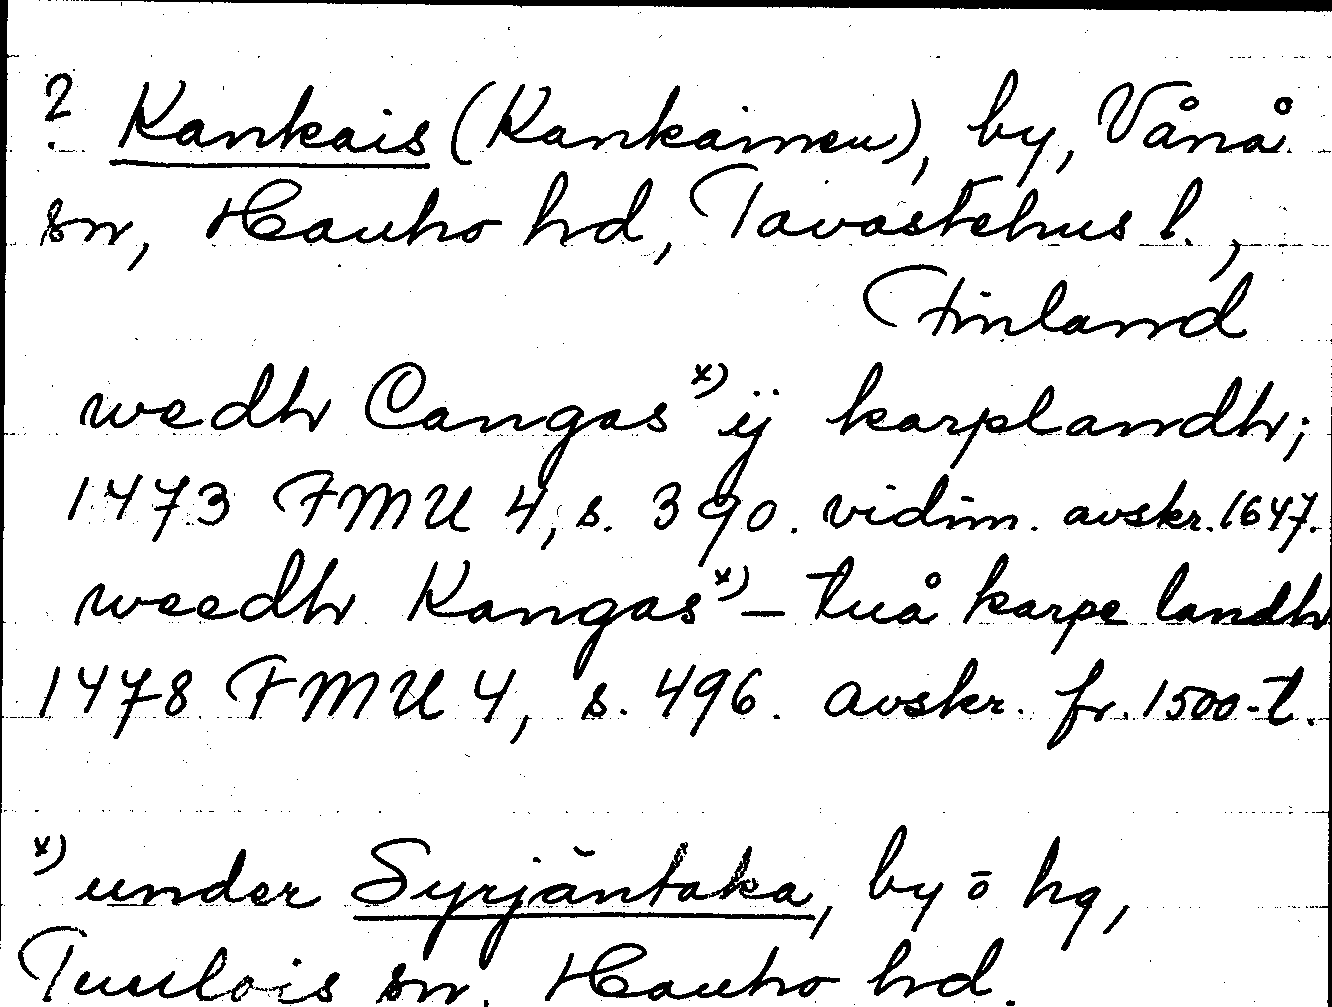 ? Kankais (Kankainen), by, Vånå
sn, Hauho hd, Tavastehus l.,
Finland
wedh Cangas x) ÿ karplandh;
1473 FMU 4, s. 390. vidim. avskr. 1647.
weedh Kangas x) – tuå karpe landh
1478 FMU 4, s. 496. avskr. fr. 1500-t.
x) under Syrjäntaka, by o hg,
Tuulois sn, Hauho hd.